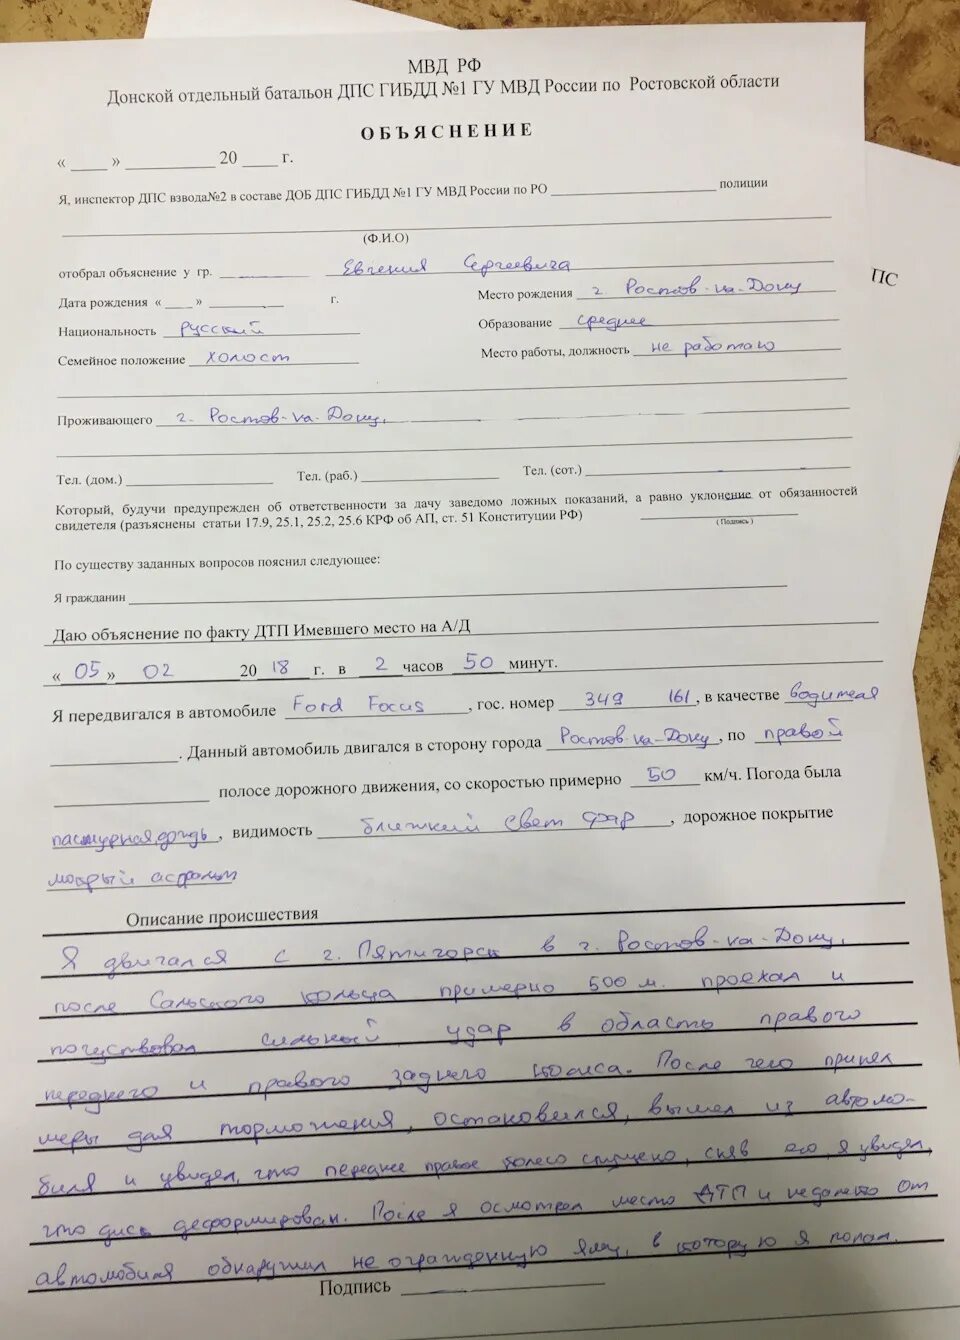 МВД РФ
Донской отдельный батальон ДПС ГИБДД №1 ГУ МВД России по Ростовской области
ОБЪЯСНЕНИЕ
« ____ » __________ 20 ____ г.
Я, инспектор ДПС взвода№2 в составе ДОБ ДПС ГИБДД №1 ГУ МВД России по РО ____________ полиции
(Ф.И.О)
отобрал объяснение у гр. __________ Евгения Сергеевича
Дата рождения « ____ » __________ г. Место рождения г. Ростов-на-Дону
Национальность русский Образование среднее
Семейное положение холост Место работы, должность не работаю
ПС
Проживающего г. Ростов-на-Дону,
Тел. (дом.) __________ Тел. (раб.) __________ Тел. (сот.) __________
Который, будучи предупрежден об ответственности за дачу заведомо ложных показаний, а равно уклонение от обязанностей
свидетеля (разъяснены статьи 17.9, 25.1, 25.2, 25.6 КРФ об АП, ст. 51 Конституции РФ) __________
(Подпись)
По существу заданных вопросов пояснил следующее:
Я гражданин __________
Даю объяснение по факту ДТП Имевшего место на А/Д
« 05 » 02 20 18 г. в 2 часов 50 минут.
Я передвигался в автомобиле Ford Focus, гос. номер 349 161, в качестве водителя
__________. Данный автомобиль двигался в сторону города Ростов-на-Дону, по правой
__________ полосе дорожного движения, со скоростью примерно 50 км/ч. Погода была
пасмурная, дождь, видимость ближний свет фар, дорожное покрытие
мокрый асфальт
Описание происшествия
Я двигался с г. Пятигорск в г. Ростов-на-Дону,
после Сальского кольца примерно 500 м. проехал и
почуствовал сильный удар в область правого
переднего и правого заднего колеса. После чего принял
меры для торможения, остановился, вышел из автомо-
биля и увидел, что переднее правое колесо спущено, сняв его, я увидел,
что диск деформирован. После я осмотрел место ДТП и недалеко от
автомобиля обнаружил не огражденную яму, в которую я попал.
Подпись __________